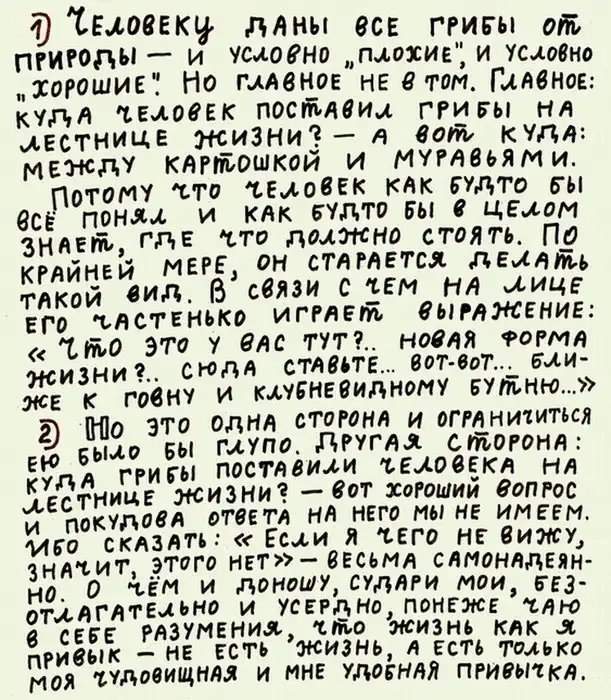 1) Человеку даны все грибы от
природы — и условно „плохие", и условно
„хорошие". Но главное не в том. Главное:
куда человек поставил грибы на
лестнице жизни? — а вот куда:
между картошкой и муравьями.
Потому что человек как будто бы
всё понял и как будто бы в целом
знает, где что должно стоять. По
крайней мере, он старается делать
такой вид. В связи с чем на лице
его частенько играет выражение:
«Что это у вас тут?.. новая форма
жизни?.. сюда ставьте... вот-вот... бли-
же к говну и клубневидному бутню...»
2) Но это одна сторона и ограничиться
ею было бы глупо. Другая сторона:
куда грибы поставили человека на
лестнице жизни? — вот хороший вопрос
и покудова ответа на него мы не имеем.
Ибо сказать: «Если я чего не вижу,
значит, этого нет» — весьма самонадеян-
но. О чём и доношу, судари мои, без-
отлагательно и усердно, понеже чаю
в себе разумения, что жизнь как я
привык — не есть жизнь, а есть только
моя чудовищная и мне удобная привычка.